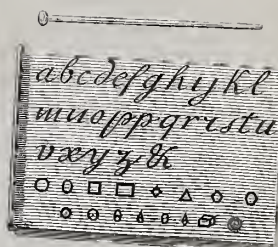 abcdefghijkl
mnoppqristu
vxyz&